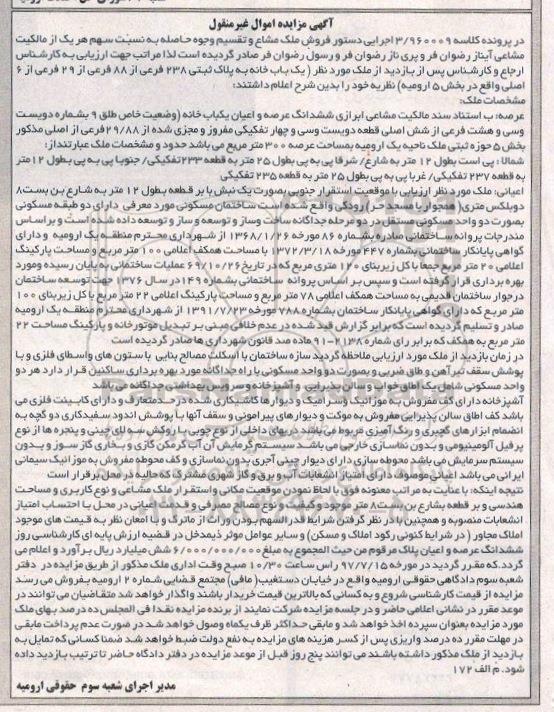 آگهی مزایده اموال غیرمنقول
در پرونده کلاسه ۳/۹۶۰۰۰۹ اجرایی دستور فروش ملک مشاع و تقسیم وجوه حاصله به نسبت سهم هر یک از مالکیت
مشاعی آیناز رضوان فر و پری ناز رضوان فر و رسول رضوان فر صادر گردیده است لذا مراتب جهت ارزیابی به کارشناس
ارجاع و کارشناس پس از بازدید از ملک مورد نظر ( یک باب خانه به پلاک ثبتی ۲۳۸ فرعی از ۸۸ فرعی از ۲۹ فرعی از ۶
اصلی واقع در بخش ۵ ارومیه) نظریه خود را بدین شرح اعلام داشتند:
مشخصات ملک:
عرصه: ب استناد سند مالکیت مشاعی ابرازی ششدانگ عرصه و اعیان یکباب خانه (وضعیت خاص طلق ۹ بشماره دویست
وسی و هشت فرعی از شش اصلی قطعه دویست وسی و چهار تفکیکی مفروز و مجزی شده از ۲۹/۸۸ فرعی از اصلی مذکور
بخش ۵ حوزه ثبتی ملک ناحیه یک ارومیه بمساحت عرصه ۳۰۰ متر مربع می باشد حدود و مشخصات ملک عبارتنداز:
شمالا : پی است بطول ۱۲ متر به شارع/ شرقا پی به پی بطول ۲۵ متر به قطعه ۲۳۳ تفکیکی/ جنوبا پی به پی بطول ۱۲ متر
به قطعه ۲۳۷ تفکیکی/ غربا پی به پی بطول ۲۵ متر به قطعه ۲۳۵ تفکیکی
اعیانی: ملک مورد نظر ارزیابی با موقعیت استقرار جنوبی بصورت یک نبش با بر قطعه بطول ۱۲ متر به شارع بن بست ۸
دوبلکس متری( همجوار با مسجد حر) رودکی واقع شده است ساختمان مسکونی مورد معرفی دارای دو طبقه مسکونی
بصورت دو واحد مسکونی مستقل در دو مرحله جداگانه ساخت وساز و توسعه و ساز و توسعه داده شده است و براساس
مندرجات پروانه ساختمانی صادره بشماره ۸۶ مورخه ۱۳۶۸/۱/۲۶ از شهرداری محترم منطقه یک ارومیه و دارای
گواهی پایانکار ساختمانی بشماره ۴۴۷ مورخه ۱۳۷۲/۳/۱۸ با مساحت همکف اعلامی ۱۰۰ متر مربع و مساحت پارکینگ
اعلامی ۲۰ متر مربع جمعا با کل زیربنای ۱۲۰ متری مربع که در تاریخ ۶۹/۱۰/۲۶ عملیات ساختمانی به پایان رسیده ومورد
بهره برداری قرار گرفته است و سپس بر اساس پروانه ساختمانی بشماره ۱۴۹ در سال ۱۳۷۶ جهت توسعه ساختمان
درجوار ساختمان قدیمی به مساحت همکف اعلامی ۷۸ متر مربع و مساحت پارکینگ اعلامی ۲۲ متر مربع با کل زیربنای ۱۰۰
متر مربع که دارای گواهی پایانکار ساختمان بشماره ۷۸۸ مورخه ۱۳۹۱/۷/۲۳ از شهرداری محترم منطقه یک ارومیه
صادر و تسلیم گردیده است که برابر گزارش قید شده در عدم خلافی مبنی بر تبدیل موتورخانه و پارکینگ مساحت ۲۲
متر مربع به همکف که برابر رای شماره ۲۱۳۸-۹۱ ماده صد قانون شهرداری ها صادر گردیده است
در زمان بازدید از ملک مورد ارزیابی ملاحظه گردید سازه ساختمان با اسکلت مصالح بنایی با ستون های واسطای فلزی و با
پوشش سقف تیرآهن و طاق ضربی و بصورت دو واحد مسکونی با راه جداگانه مورد بهره برداری ساکنین قرار دارد هر دو
واحد مسکونی شامل یک اطاق خواب و سالن پذیرایی و آشپزخانه و سرویس بهداشتی جداگانه می باشد
آشپزخانه دارای کف مفروش به موزائیک وسرامیک و دیوارها کاشیکاری شده در حد متعارف و دارای کابینت فلزی می
باشد کف اطاق سالن پذیرایی مفروش به موکت و دیوارهای پیرامونی و سقف آنها با پوشش اندود سفیدکاری دو گچه به
انضمام ابزارهای گچبری و رنگ آمیزی مربوط می باشد دربهای داخلی از نوع چوبی با روکش سه لای چینی و پنجره ها از نوع
پرفیل آلومینیومی و بدون نماسازی خارجی می باشد سیستم گرمایش آن آب گرمکن گازی و بخاری گاز سوز و بدون
سیستم سرمایش می باشد محوطه سازی دارای دیوار چینی آجری بدون نماسازی و کف محوطه مفروش به موزائیک سیمانی
ایرانی می باشد اعیان موصوف دارای امتیاز انشعابات آب و برق و گاز شهری مشترک که حالیه در محل برقرار است
نتیجه اینکه: با عنایت به مراتب معنونه فوق با لحاظ نمودن موقعیت مکانی و استقرار ملک مشاعی و نوع کاربری و مساحت
هندسی و بر قطعه بشارع بن بست ۸ متر موجود و کیفیت و نوع مصالح مصرفی و قدمت اعیانی در محل با احتساب امتیاز
انشعابات منصوبه و همچنین با در نظر گرفتن شرایط قدر السهم بودن وراث از ماترک و با امعان نظر به قیمت های موجود
املاک مجاور ( در شرایط کنونی رکود املاک و مسکن) و سایر عوامل موثر ذیمدخل در قضیه ارزش پایه ای کارشناسی روز
ششدانگ عرصه و اعیان پلاک مرقوم من حیث المجموع به مبلغ ۶/۰۰۰/۰۰۰/۰۰۰ شش میلیارد ریال برآورد و اعلام می
گردد.که مقرر گردید در مورخه ۹۷/۷/۱۵ راس ساعت ۱۰/۳۰ صبح وقت اداری ملک مذکور از طریق مزایده در دفتر
شعبه سوم دادگاهی حقوقی ارومیه واقع در خیابان دستغیب( مافی) مجتمع قضایی شماره ۲ ارومیه بفروش می رسد
مزایده از قیمت کارشناسی شروع و به کسانی که بالاترین قیمت خریدار باشند واگذار خواهد شد متقاضیان می توانند در
موعد مقرر در نشانی اعلامی حاضر و در جلسه مزایده شرکت نمایند از برنده مزایده نقدا فی المجلس ده درصد بهای ملک
مورد مزایده بعنوان سپرده اخذ خواهد شد و مابقی حداکثر ظرف یکماه وصول خواهد شد در صورت عدم پرداخت مابقی
در مهلت مقرر ده درصد واریزی پس از کسر هزینه های مزایده به نفع دولت ضبط خواهد شد ضمنا کسانی که تمایل به
بازدید از ملک مذکور داشته باشند می توانند پنج روز قبل از موعد مزایده در دفتر دادگاه حاضر تا ترتیب بازدید داده
شود. م الف ۱۷۲
مدیر اجرای شعبه سوم حقوقی ارومیه